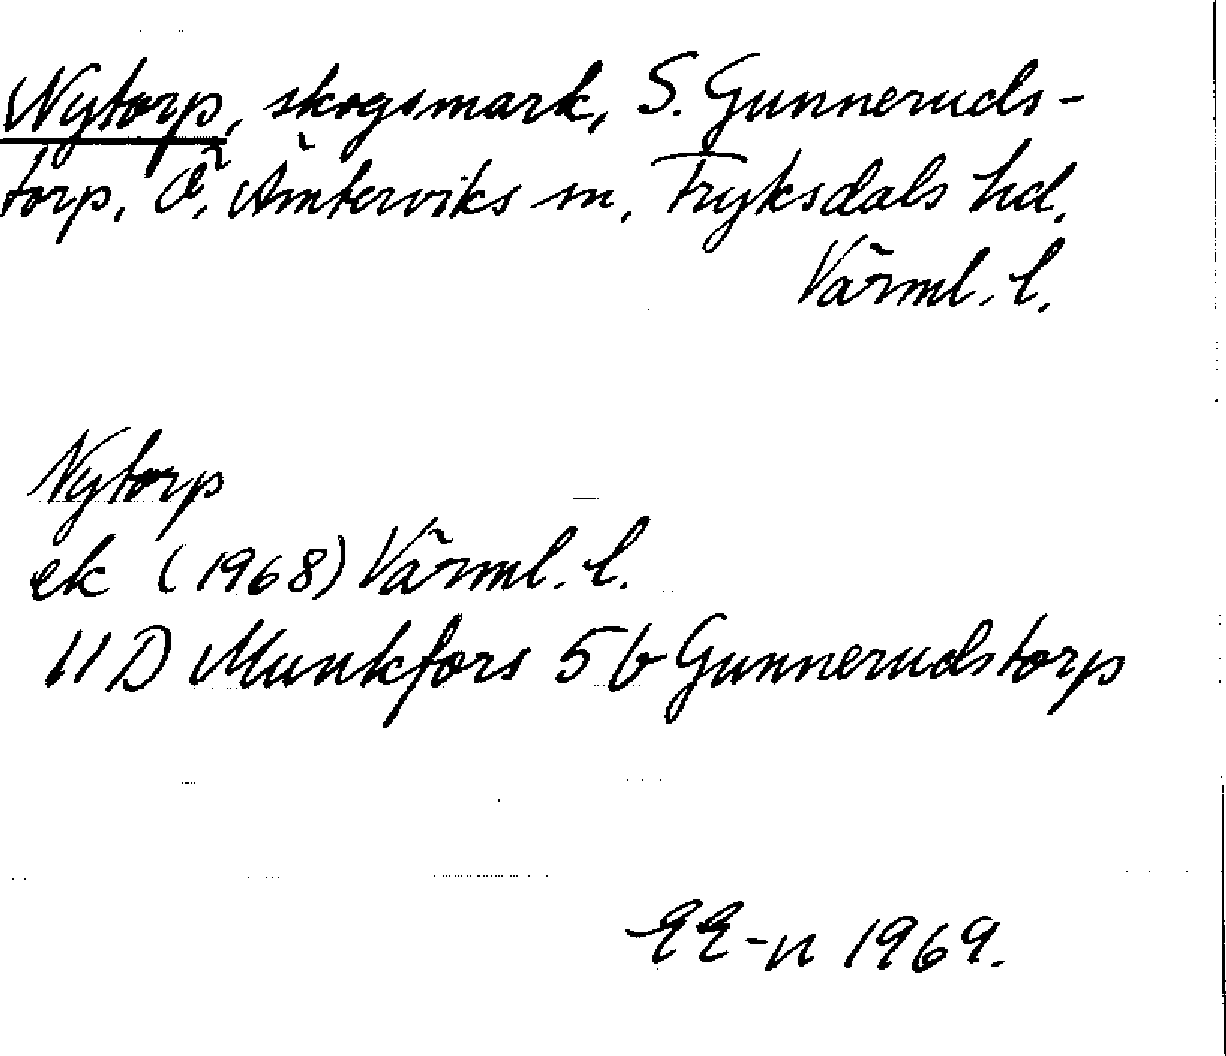 Nytorp, skogsmark, S. Gunneruds-
torp, Ö. Ämterviks sn, Fryksdals hd.
Värml. l.
Nytorp
ek (1968) Värml. l.
11 D Munkfors 5 b Gunnerudstorp
EE-n 1969.